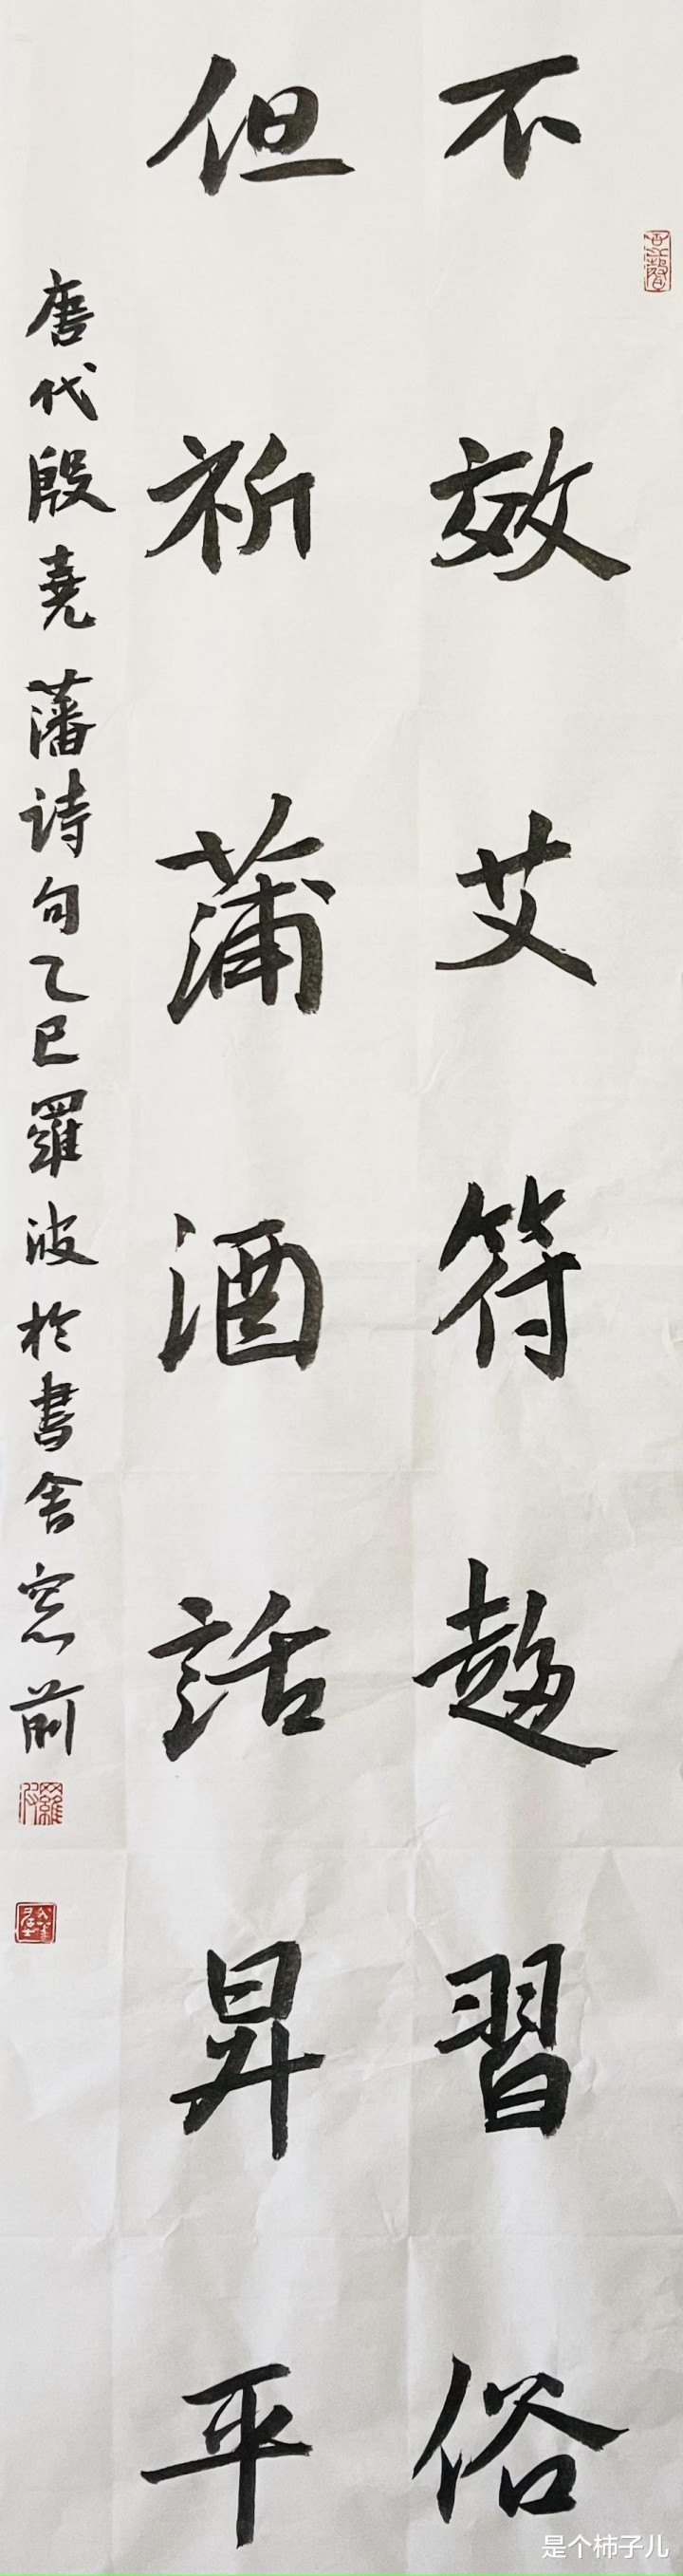 不效艾符趍習俗
但祈蒲酒話昇平
唐代殷堯藩诗句乙巳羅波於書舍窓前
羅波
是个柿子儿